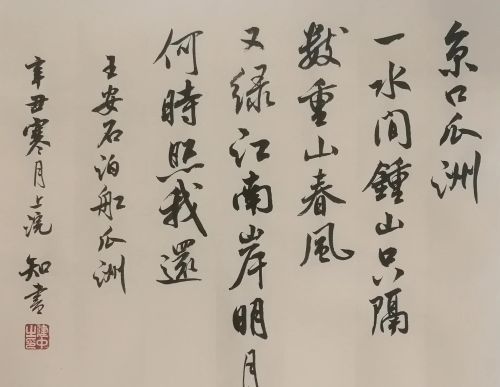 京口瓜洲
一水間鍾山只隔
數重山春風
又綠江南岸明月
何時照我還
王安石泊船瓜洲
辛丑寒月上浣 知書